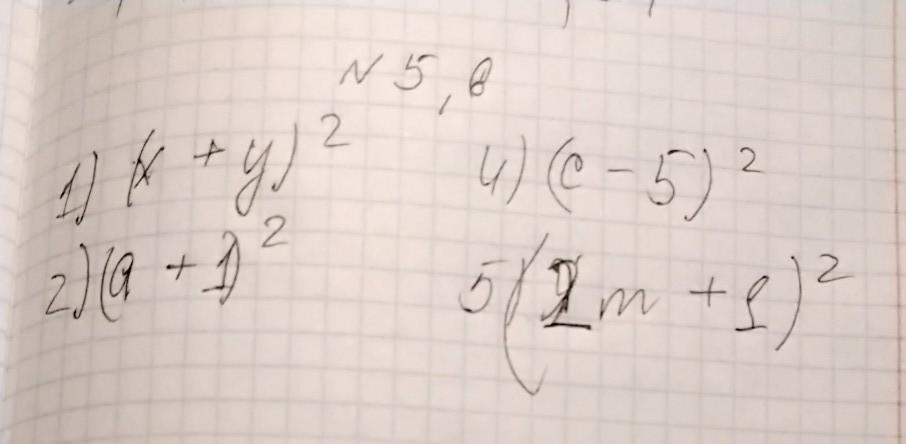 N 5, в
1) (x + y)²
2) (a + 1)²
4) (c - 5)²
5) (2m + 1)²